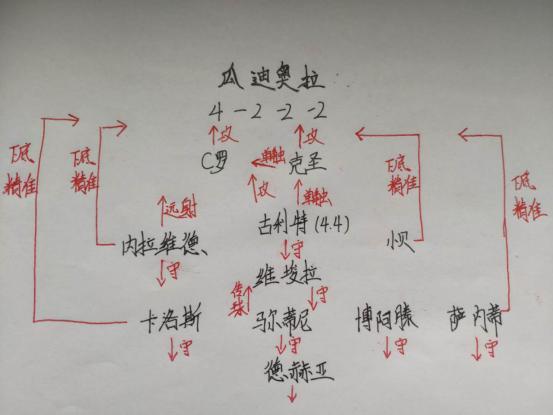 瓜迪奥拉
4-2-2-2
攻 攻
下底精准 下底精准 下底精准 下底精准
C罗 单触 克圣
攻 单触
远射
古利特(4.4)
内拉维德、 守 小贝
守 维埃拉
传球 守
卡洛斯 马尔蒂尼 博阿滕 萨内蒂
守 守 守 守
德赫亚